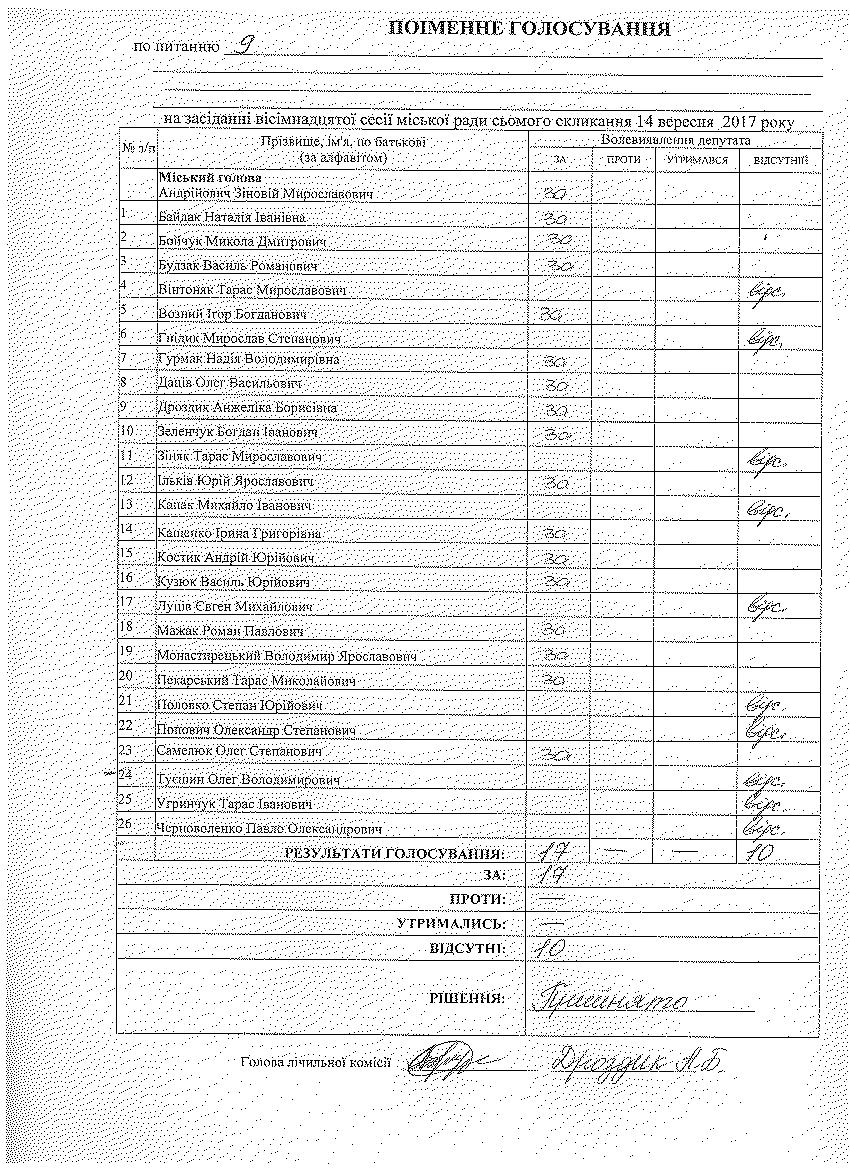 ПОІМЕННЕ ГОЛОСУВАННЯ
по питанню 9
на засіданні вісімнадцятої сесії міської ради сьомого скликання 14 вересня 2017 року
№ з/п Прізвище, ім'я, по батькові (за алфавітом) Волевиявлення депутата
ЗА ПРОТИ УТРИМАВСЯ ВІДСУТНІЙ
Міський голова
Андрійович Зіновій Мирославович за
1 Байдак Наталія Іванівна за
2 Бойчук Микола Дмитрович за
3 Будзак Василь Романович за
4 Вінтоняк Тарас Мирославович відс.
5 Возний Ігор Богданович за
6 Гнідик Мирослав Степанович відс.
7 Гурмак Надія Володимирівна за
8 Даців Олег Васильович за
9 Дроздик Анжеліка Борисівна за
10 Зеленчук Богдан Іванович за
11 Зіняк Тарас Мирославович відс.
12 Ільків Юрій Ярославович за
13 Капак Михайло Іванович відс.
14 Кащенко Ірина Григорівна за
15 Костик Андрій Юрійович за
16 Кузюк Василь Юрійович за
17 Луців Євген Михайлович відс.
18 Мажак Роман Павлович за
19 Монастирецький Володимир Ярославович за
20 Пекарський Тарас Миколайович за
21 Половко Степан Юрійович відс.
22 Попович Олександр Степанович відс.
23 Самелюк Олег Степанович за
24 Тусшин Олег Володимирович відс.
25 Угринчук Тарас Іванович відс
26 Черноволенко Павло Олександрович відс.
РЕЗУЛЬТАТИ ГОЛОСУВАННЯ: 17 — — 10
ЗА: 17
ПРОТИ: —
УТРИМАЛИСЬ: —
ВІДСУТНІ: 10
РІШЕННЯ: Прийнято
Голова лічильної комісії Дроздик А.Б.